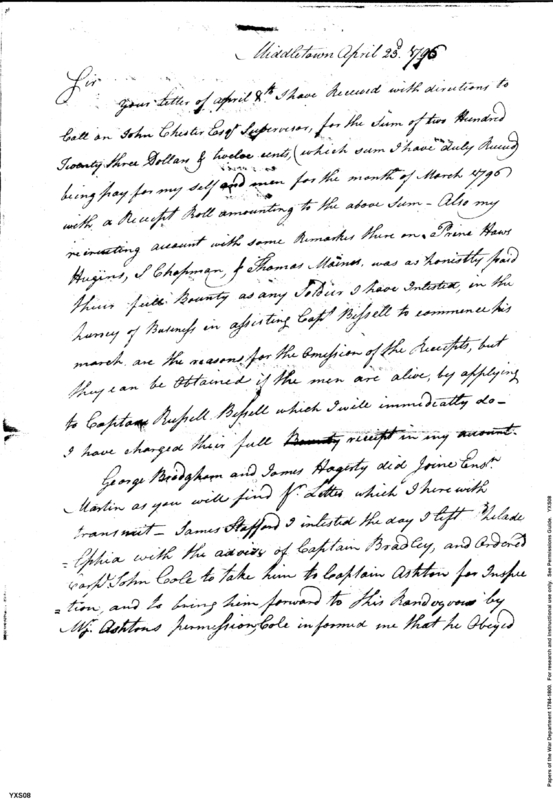 Middletown April 23d. 1796
Sir
Your Letter of April 8th I have Received with directions to
Call on John Chester Esqr Supervisor, for the Sum of two Hundred
Twenty three Dollars & twelve cents, (which sum I have duly Receivd
being pay for my self and men for the month of March 1796
with a Receipt Roll amounting to the above Sum - Also my
recruiting account with some Remarks there on. Prine Haws
Hugins, S Chapman, & Thomas Maines, was as honestly paid
their full Bounty as any Soldier I have Inlested, in the
hurrey of Business in assisting Capt Bissell to commence his
march are the reasons for the Omission of the Receipts, but
they can be Obtained if the men are alive, by applying
to Captain Russell Bissell which I will immediatly do -
I have charged their full Bounty receipt in my account.
George Bridgham and James Hagerty did Joine Ensn.
Martin as you will find Pr. Letter which I here with
transmit - James Stafford I inlested the day I left Philade
=lphia with the advice of Captain Bradley, and Ordered
Corpl. John Cole to take him to Captain Ashton for Inspec
=tion, and to bring him forward to this Randezvous by
Mjr. Ashtons permission, Cole informed me that he Obeyed
YXS08
Papers of the War Department 1784-1800. For research and instructional use only. See Permissions Guide. YXS08